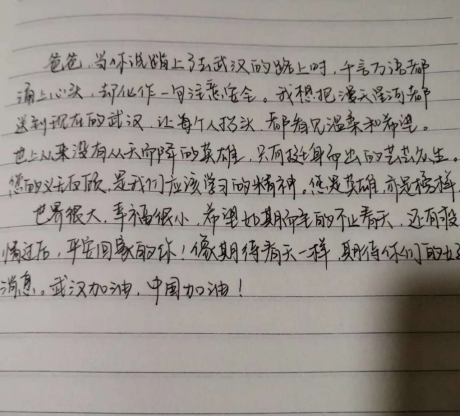 爸爸，当你说踏上了去武汉的路上时，千言万语都
涌上心头，却化作一句注意安全。我想把漫天星河都
送到现在的武汉，让每个人抬头，都看见温柔和希望。
世上从来没有从天而降的英雄，只有挺身而出的芸芸众生。
您的义无反顾，是我们应该学习的精神。您是英雄，亦是榜样
世界很大，幸福很小，希望如期而至的不止春天，还有疫
情过后，平安回家的你！像期待春天一样，期待你们的好
消息。武汉加油，中国加油！